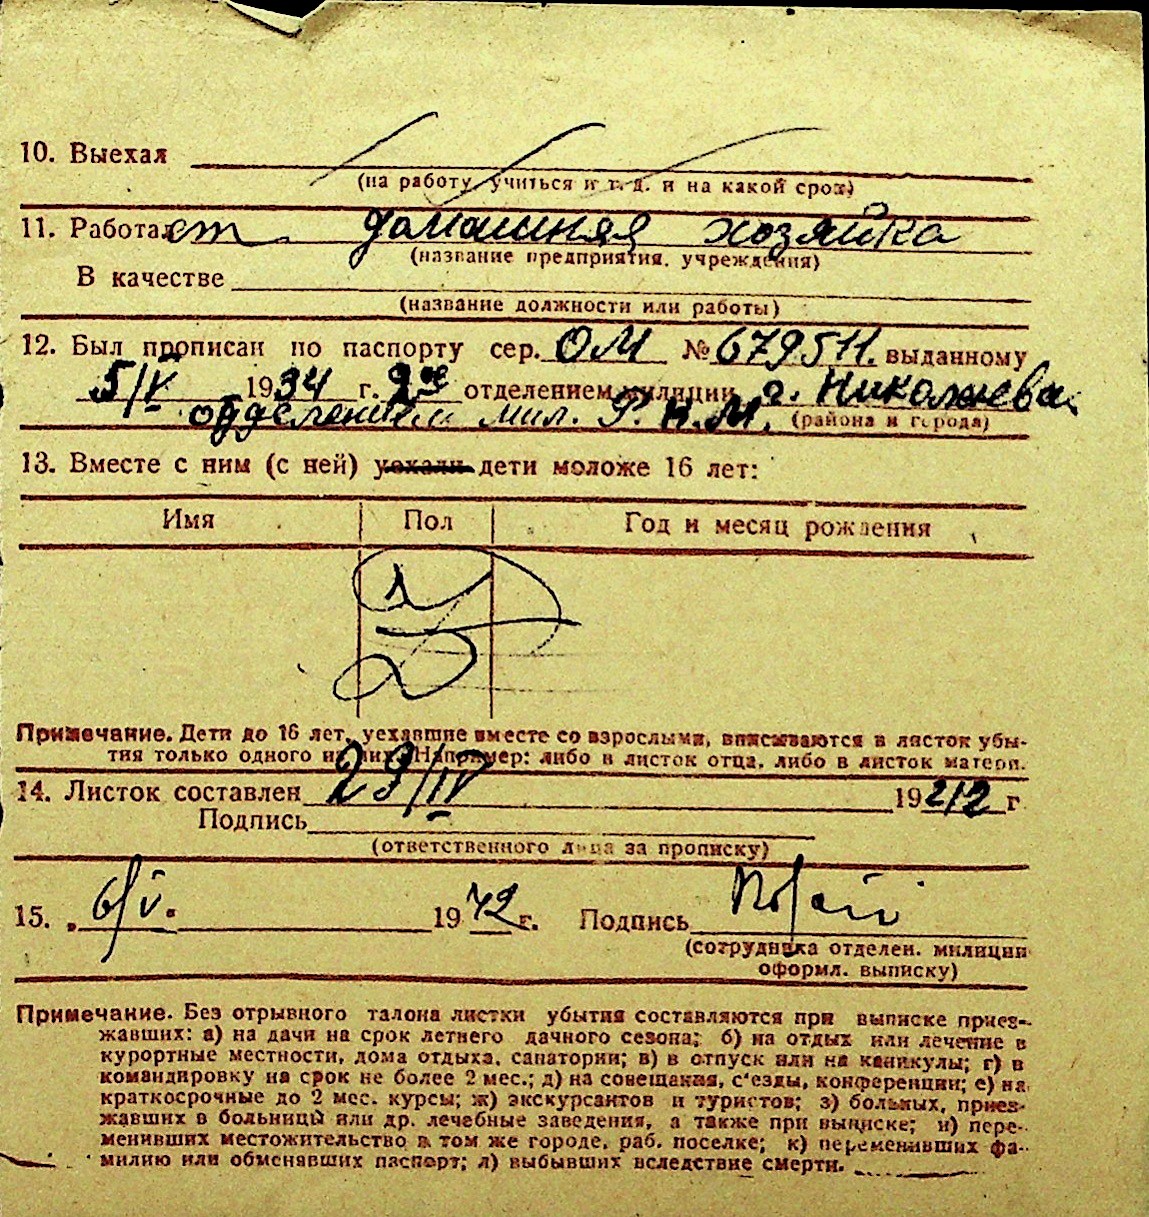 10. Выехал
(на работу, учиться и т. д. и на какой срок)
11. Работает домашняя хозяйка
(название предприятия, учреждения)
В качестве
(название должности или работы)
12. Был прописан по паспорту сер. ОМ № 679511. выданному
5/V 1934 г. 2ое отделением милиции г. Николаева
отделением мил. Р.К.М. (района и города)
13. Вместе с ним (с ней) уехали дети моложе 16 лет:
Имя Пол Год и месяц рождения
Примечание. Дети до 16 лет, уехавшие вместе со взрослыми, вписываются в листок убы-
тия только одного из них. Например: либо в листок отца, либо в листок матери.
14. Листок составлен 29/IV 1942 г
Подпись
(ответственного лица за прописку)
15. „ 6/V. 1942 г. Подпись
(сотрудника отделен. милиции
оформл. выписку)
Примечание. Без отрывного талона листки убытия составляются при выписке приез-
жавших: а) на дачи на срок летнего дачного сезона; б) на отдых или лечение в
курортные местности, дома отдыха, санатории; в) в отпуск или на каникулы; г) в
командировку на срок не более 2 мес.; д) на совещания, с'езды, конференции; е) на
краткосрочные до 2 мес. курсы; ж) экскурсантов и туристов; з) больных, приез-
жавших в больницы или др. лечебные заведения, а также при выписке; и) пере-
менивших местожительство в том же городе, раб. поселке; к) переменивших фа-
милию или обменявших паспорт; л) выбывших вследствие смерти.